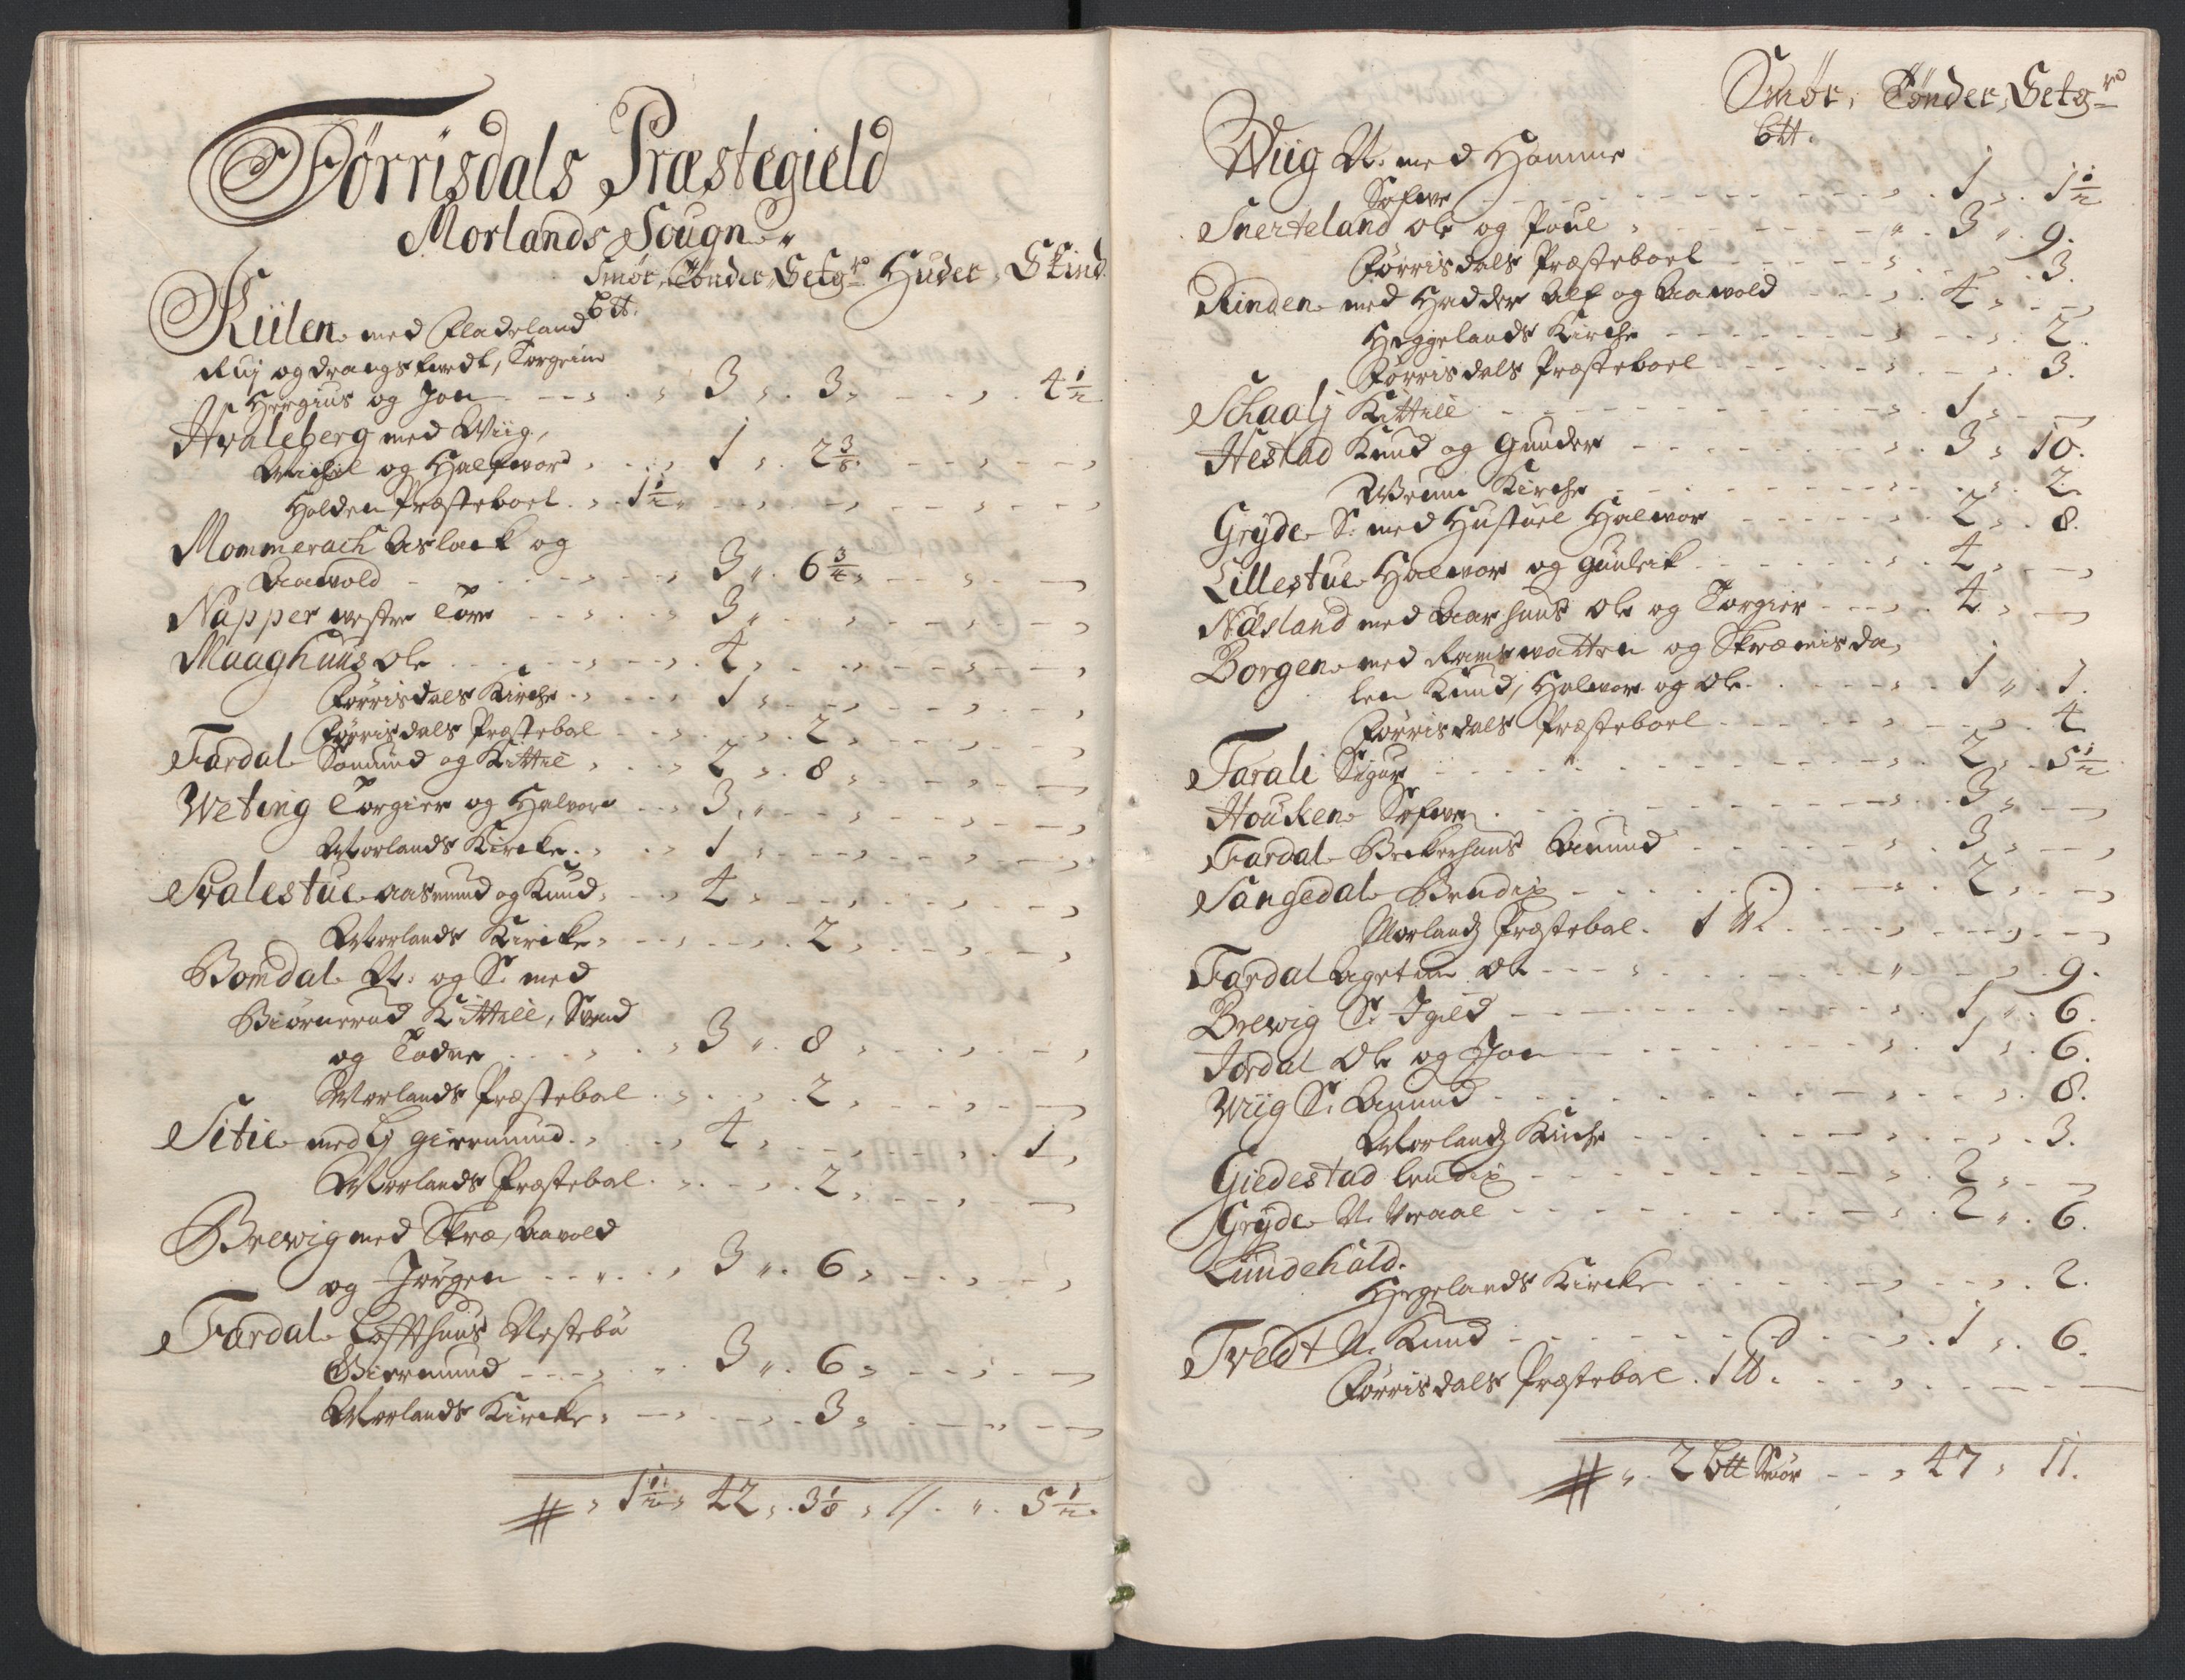 Førrisdals Præstegield
Morlands Sougn
Smør, Tønder, Setg.r Huder, Skind
btt.
Kiilen med Fladeland
Ruj og drangsfædt, Torgrim
Hergius og Jon 3 . 3 . 4½
Hvaleberg med Wiig,
og Halfvor 1 . 2⅜
Holden Præsteboel 1½
Mommerach Aslack og
Aavold 3 . 6¾
Napper vestre Tore 3
Maaghuus Ole 4
Førrisdals Kirche 1
Førrisdals Præstebol 2
Fardal Samund og Kittil 2 . 8
Weting Torgier og Halvor 3
Morlands Kircke 1
Svalestue Aasmund og Knud 4
Morlands Kircke 2
Bomdal N. og S. med
Biørnerud Kittill, Svend
og Tadne 3 . 8
Morlands Præstebol 2
Sitie med Lj Giermund 4 . 1
Morlands Præstebol 2
Brewig med Skræ, Aavold
og Jørgen 3 . 6
Fardal Loffthuus Nestebø
Giermund 3 . 6
Morlands Kircke 3
1½ 42 . 3⅛ . // . 5½
Smør, Tønder, Setg.r
btt.
Wiig N. med Hamme
Søfver 1 . 1½
Snerteland Ole og Poul 3 . 9.
Førrisdals Præsteboel 3.
Rinden med Hadder Alf og Aavold 4
Heggelands Kirche 2.
Førrisdals Præsteboel 3.
Schaalj Kittill 1
Hestad Knud og Gunder 3 . 10.
Wrum Kirche 2.
Gryde S. med Hustvel Halvor 2 . 8.
Lillestue Halvor og Gunleik 4
Næsland med Aarhuus Ole og Torgier 4
Borgen med Ramsvatten og Skræmisda,
len Knud, Halvor og Ole 1 . 1.
Førrisdals Præsteboel 4
Farali Sigur 2 . 5½
Houken Søfver 3
Fardal Beckerhuus Amund 3
Sangedal Bendix 2
Morlands Præstebol. 1 ℔.
Fardal Agetun Ole 9.
Brewig S. Igild 1 . 6.
Jordal Ole og Jon 1 . 6.
Wiig S. Amund 8.
Morlands Kirche 3.
Giedestad Bendix 2
Gryde N. Wraal 2 . 6.
Lundehald.
Hegelands Kircke 2.
Tvedt N. Knud 1 . 6.
Førrisdals Præstebol. 1 ℔.
2 btt Smør 47 . 11.